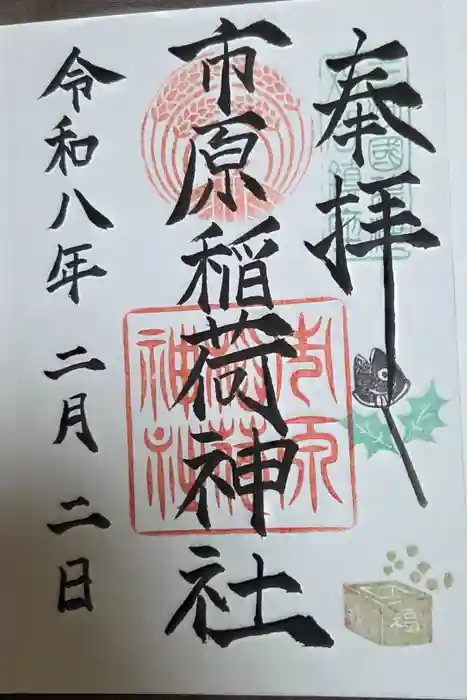 奉拝
市原稲荷神社
令和八年 二月 二日
市原稲荷神社
福